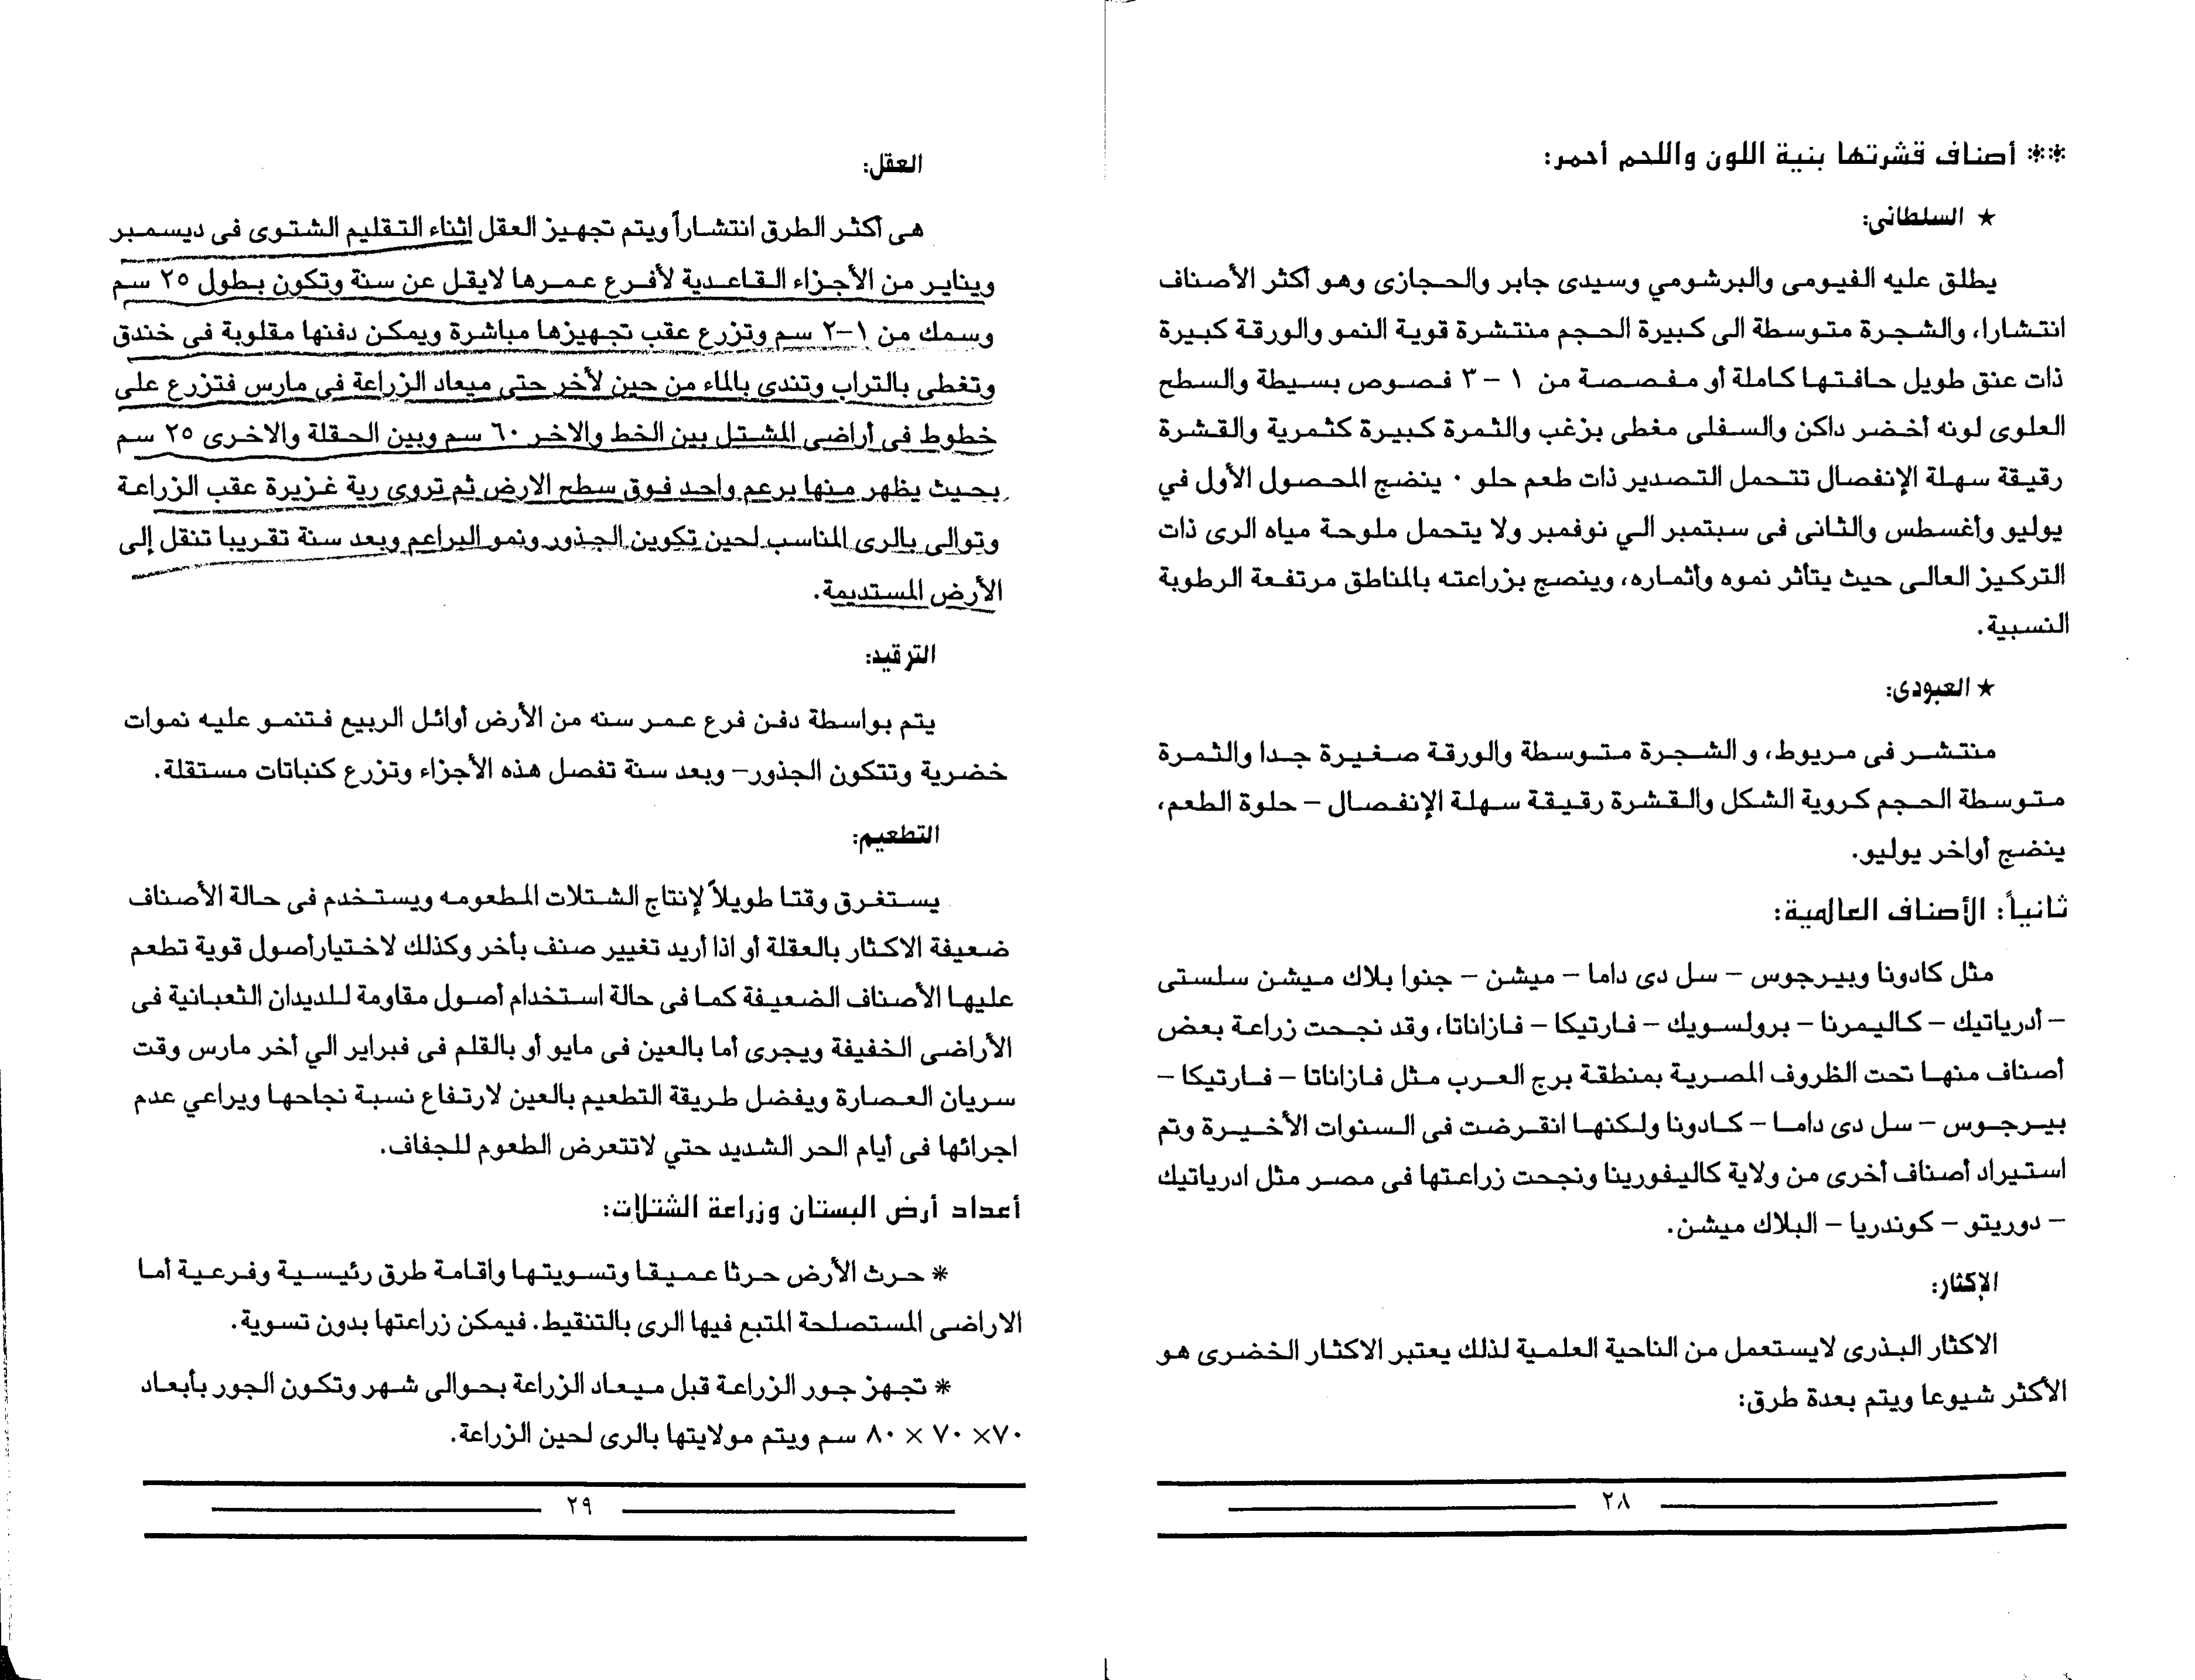 ** أصناف قشرتها بنية اللون واللحم أحمر:
★ السلطانى:
يطلق عليه الفيومى والبرشومي وسيدى جابر والحجازى وهو أكثر الأصناف
انتشارا، والشجرة متوسطة الى كبيرة الحجم منتشرة قوية النمو والورقة كبيرة
ذات عنق طويل حافتها كاملة أو مفصصة من ١ – ٣ فصوص بسيطة والسطح
العلوى لونه أخضر داكن والسفلى مغطى بزغب والثمرة كبيرة كثمرية والقشرة
رقيقة سهلة الإنفصال تتحمل التصدير ذات طعم حلو ٠ ينضج المحصول الأول في
يوليو وأغسطس والثانى فى سبتمبر الي نوفمبر ولا يتحمل ملوحة مياه الرى ذات
التركيز العالى حيث يتأثر نموه وأثماره، وينصج بزراعته بالمناطق مرتفعة الرطوبة
النسبية.
★ العبودى:
منتشر فى مريوط، و الشجرة متوسطة والورقة صغيرة جدا والثمرة
متوسطة الحجم كروية الشكل والقشرة رقيقة سهلة الإنفصال – حلوة الطعم،
ينضج أواخر يوليو.
ثانياً: الأصناف العالمية:
مثل كادونا وبيرجوس – سل دى داما – ميشن – جنوا بلاك ميشن سلستى
– أدرياتيك – كاليمرنا – برولسويك – فارتيكا – فازاناتا، وقد نجحت زراعة بعض
أصناف منها تحت الظروف المصرية بمنطقة برج العرب مثل فازاناتا – فارتيكا –
بيرجوس – سل دى داما – كادونا ولكنها انقرضت فى السنوات الأخيرة وتم
استيراد أصناف أخرى من ولاية كاليفورينا ونجحت زراعتها فى مصر مثل ادرياتيك
– دوريتو – كوندريا – البلاك ميشن.
الإكثار:
الاكثار البذرى لايستعمل من الناحية العلمية لذلك يعتبر الاكثار الخضرى هو
الأكثر شيوعا ويتم بعدة طرق:
٢٨
العقل:
هى أكثر الطرق انتشاراً ويتم تجهيز العقل اثناء التقليم الشتوى فى ديسمبر
ويناير من الأجزاء القاعدية لأفرع عمرها لايقل عن سنة وتكون بطول ٢٥ سم
وسمك من ١–٢ سم وتزرع عقب تجهيزها مباشرة ويمكن دفنها مقلوبة فى خندق
وتغطى بالتراب وتندى بالماء من حين لأخر حتى ميعاد الزراعة فى مارس فتزرع على
خطوط فى أراضى المشتل بين الخط والاخر ٦٠ سم وبين الحقلة والاخرى ٢٥ سم
بحيث يظهر منها برعم واحد فوق سطح الارض ثم تروى رية غزيرة عقب الزراعة
وتوالى بالرى المناسب لحين تكوين الجذور ونمو البراعم وبعد سنة تقريبا تنقل إلى
الأرض المستديمة.
الترقيد:
يتم بواسطة دفن فرع عمر سنه من الأرض أوائل الربيع فتنمو عليه نموات
خضرية وتتكون الجذور– وبعد سنة تفصل هذه الأجزاء وتزرع كنباتات مستقلة.
التطعيم:
يستغرق وقتا طويلاً لإنتاج الشتلات المطعومه ويستخدم فى حالة الأصناف
ضعيفة الاكثار بالعقلة أو اذا أريد تغيير صنف بأخر وكذلك لاختيارأصول قوية تطعم
عليها الأصناف الضعيفة كما فى حالة استخدام أصول مقاومة للديدان الثعبانية فى
الأراضى الخفيفة ويجرى أما بالعين فى مايو أو بالقلم فى فبراير الي أخر مارس وقت
سريان العصارة ويفضل طريقة التطعيم بالعين لارتفاع نسبة نجاحها ويراعي عدم
اجرائها فى أيام الحر الشديد حتي لاتتعرض الطعوم للجفاف.
أعداد أرض البستان وزراعة الشتلات:
* حرث الأرض حرثا عميقا وتسويتها واقامة طرق رئيسية وفرعية أما
الاراضى المستصلحة المتبع فيها الرى بالتنقيط. فيمكن زراعتها بدون تسوية.
* تجهز جور الزراعة قبل ميعاد الزراعة بحوالى شهر وتكون الجور بأبعاد
٧٠× ٧٠ × ٨٠ سم ويتم مولايتها بالرى لحين الزراعة.
٢٩